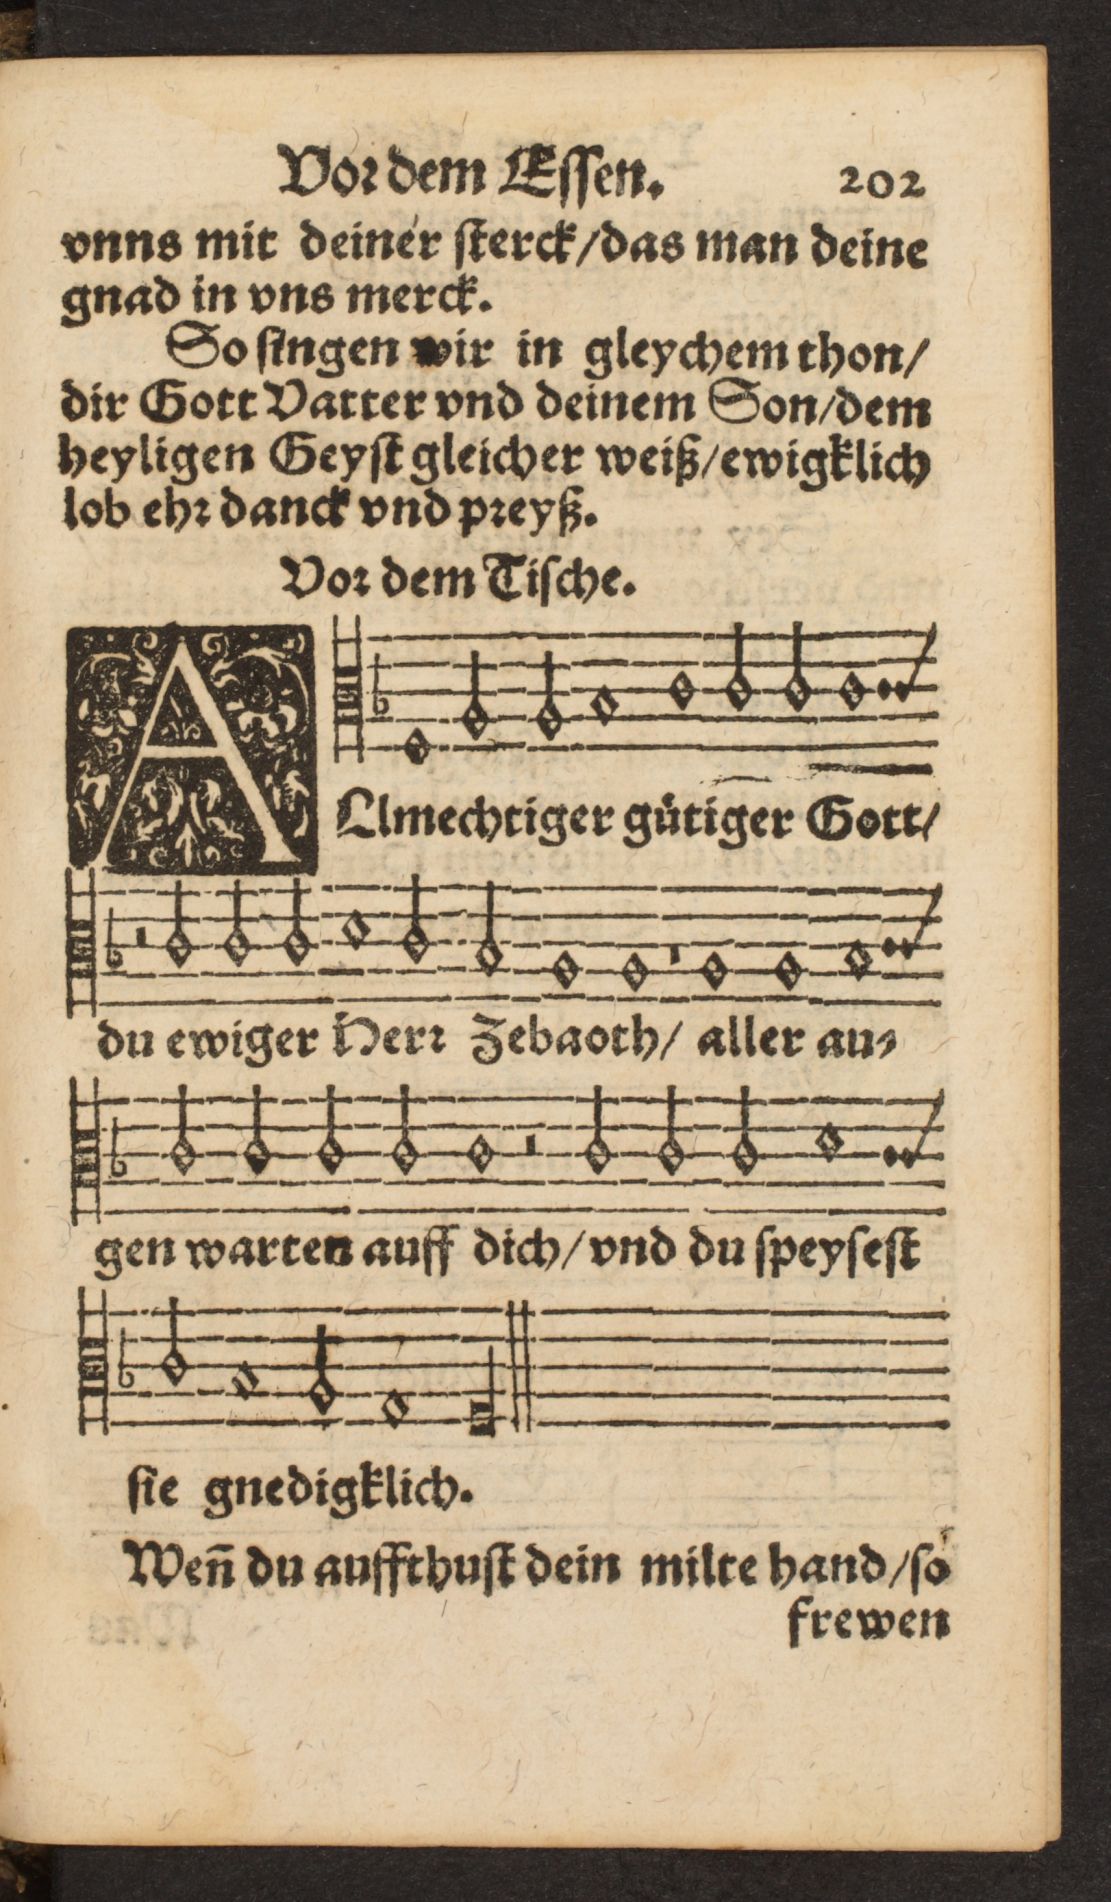 Vor dem Essen. 202
vnns mit deiner sterck/das man deine
gnad in vns merck.
So singen wir in gleychem thon/
dir Gott Vatter vnd deinem Son/dem
heyligen Geyst gleicher weiß/ewigklich
lob ehr danck vnd preyß.
Vor dem Tische.
ALlmechtiger gütiger Gott/
du ewiger Herr Zebaoth/ aller au-
gen warten auff dich/vnd du speysest
sie gnedigklich.
Weñ du auffthust dein milte hand/so
frewen